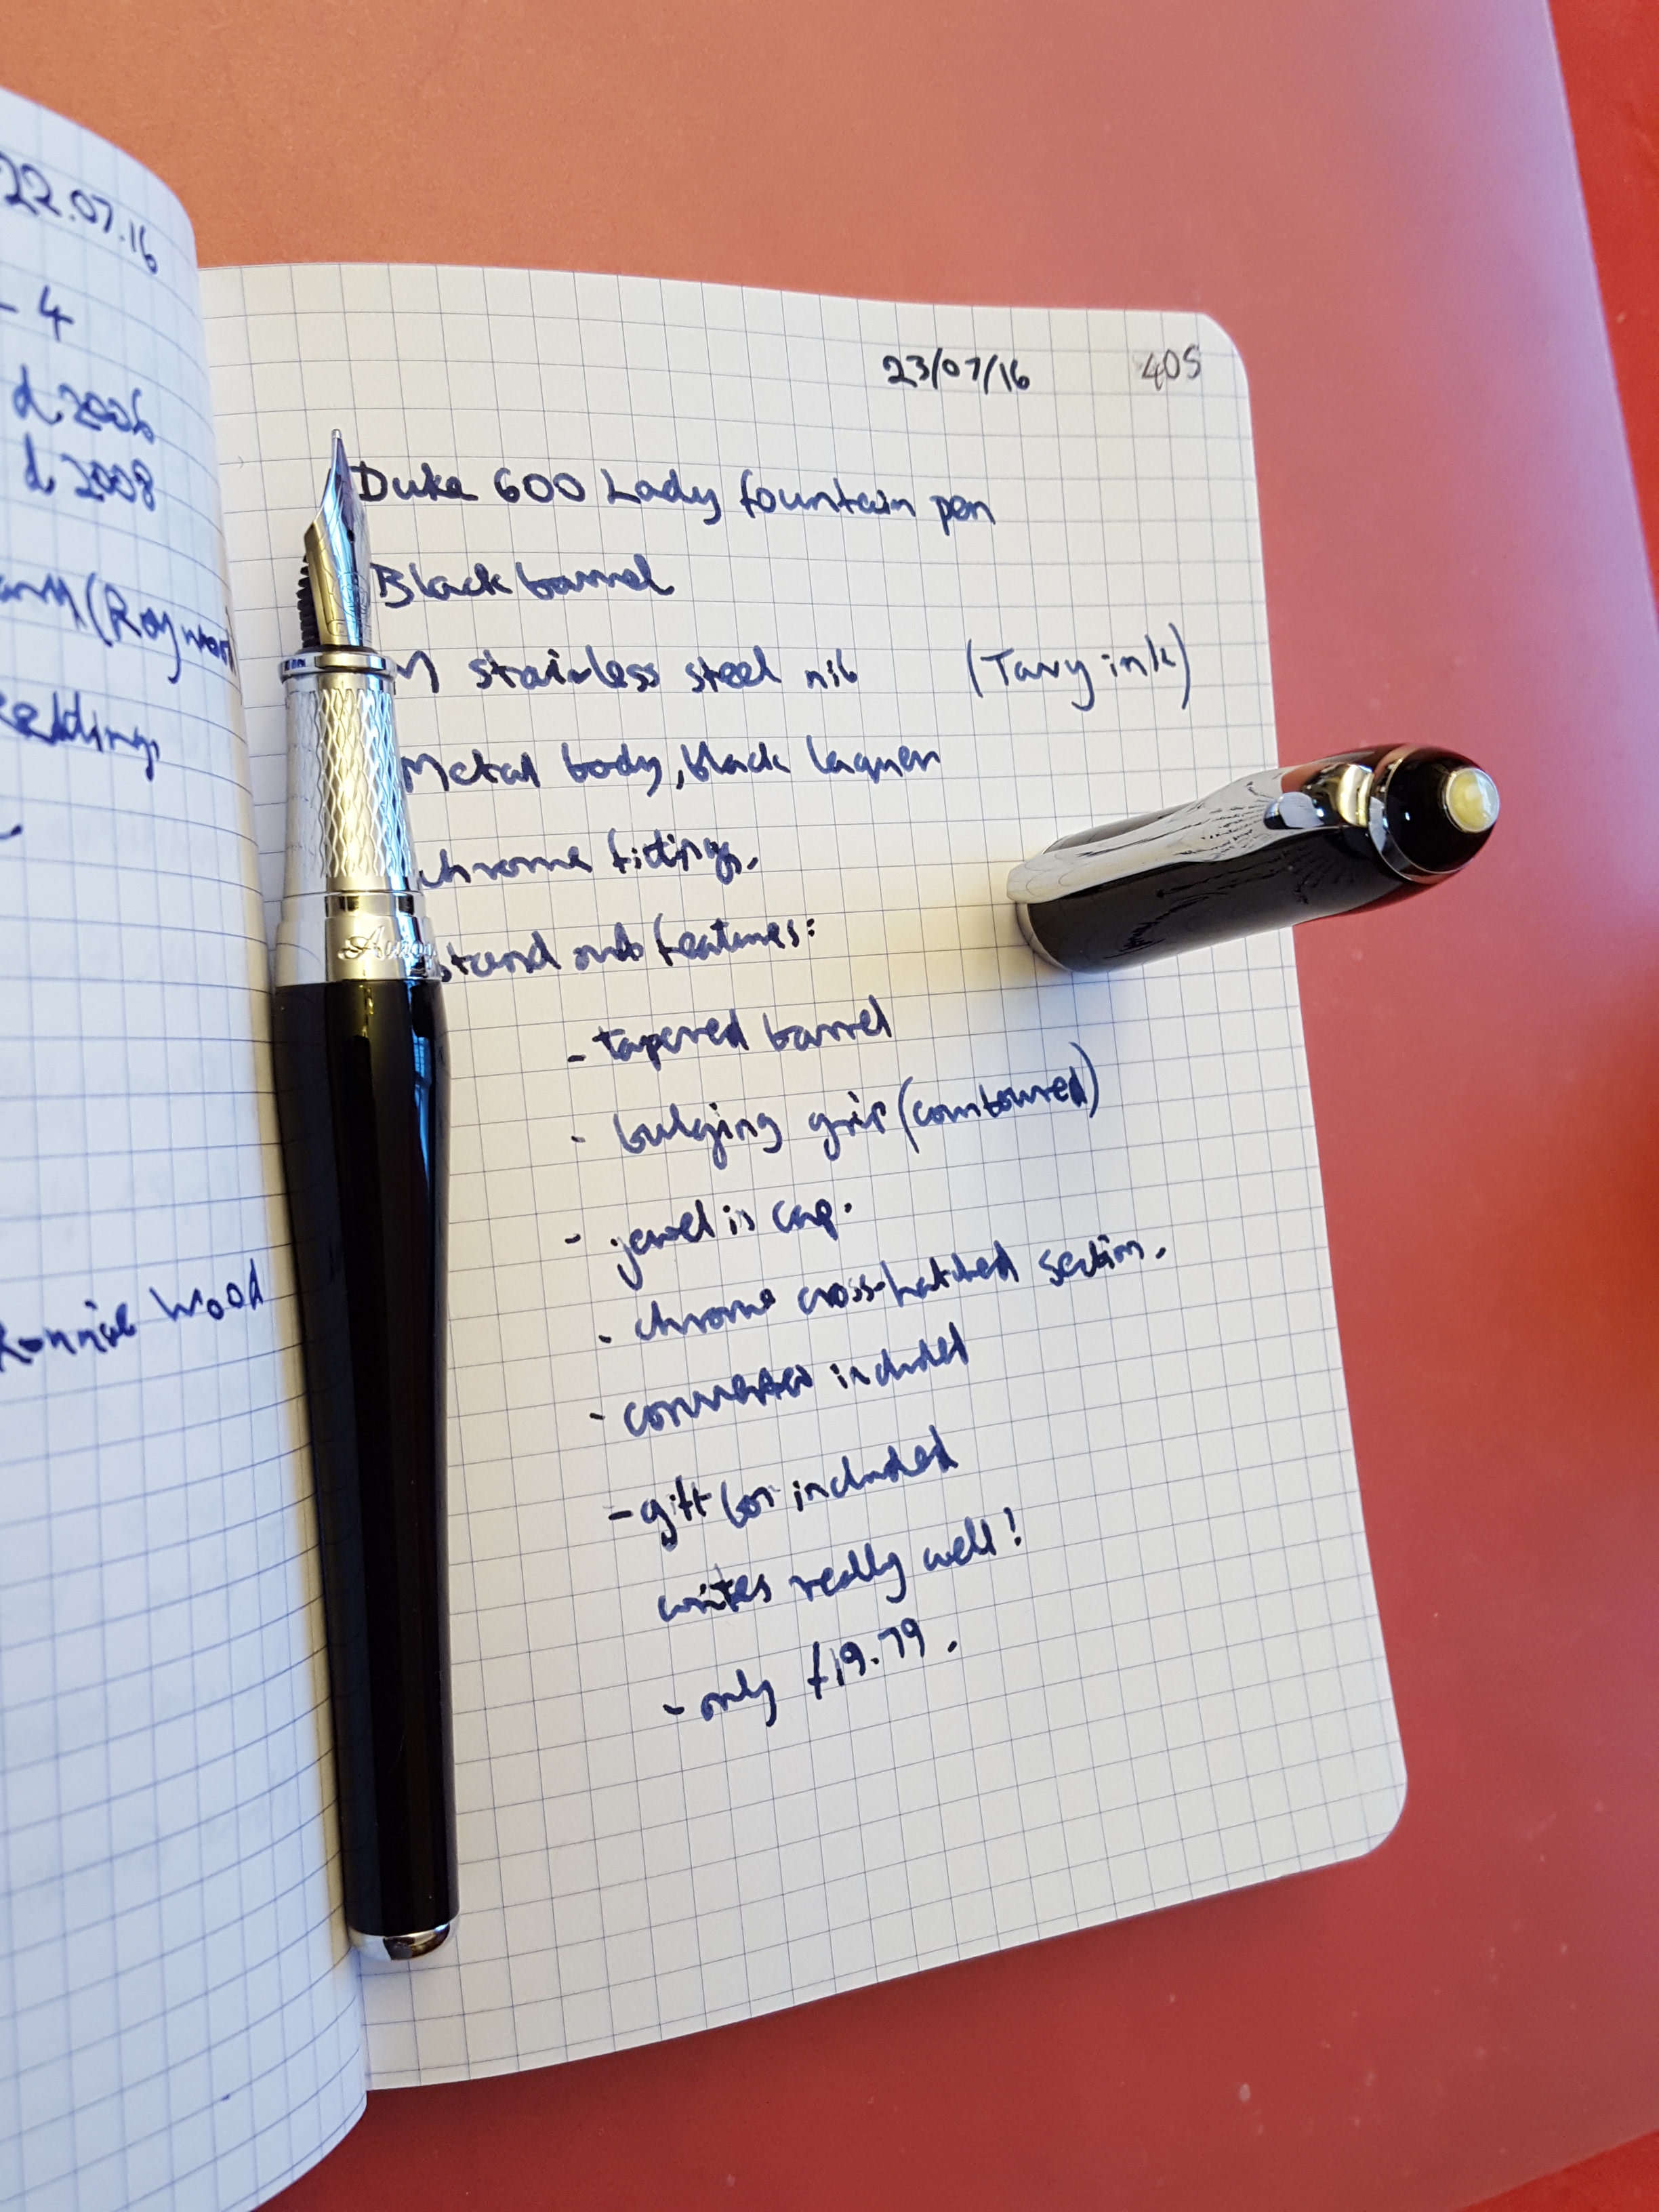 22.07.16
- 4
d 2006
d 2008
(Roy
Ronnie Wood
23/07/16 405
Duke 600 Lady fountain pen
Black barrel
M stainless steel nib (Tavy ink)
Metal body, black laquer
chrome fittings.
stand out features:
- tapered barrel
- bulging grip (contoured)
- jewel in cap.
- chrome cross-hatched section.
- converter included
- gift box included
writes really well!
- only £19.79.